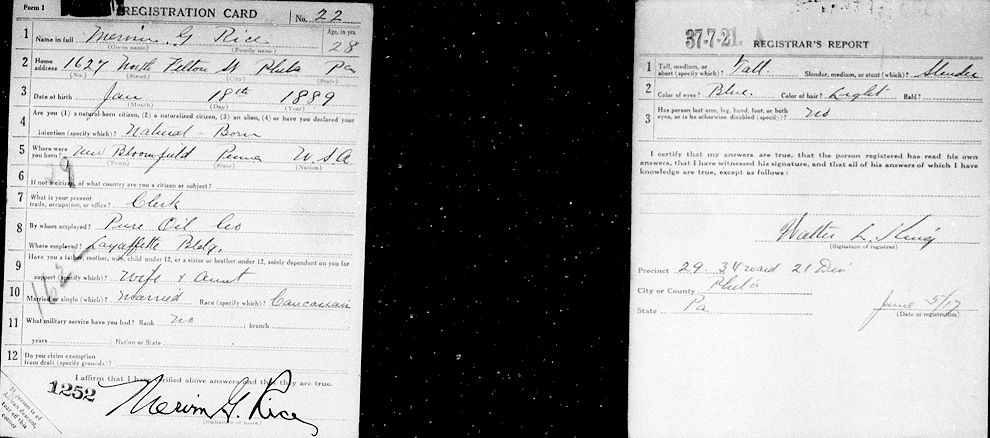 Form 1 REGISTRATION CARD No. 22
1 Name in full Mervin G Rice Age, in yrs. 28
(Given name) (Family name)
2 Home address 1627 North Felton St Phila Pa
(No.) (Street) (City) (State)
3 Date of birth Jan 18th 1889
(Month) (Day) (Year)
4 Are you (1) a natural-born citizen, (2) a naturalized citizen, (3) an alien, (4) or have you declared your
intention (specify which)? Natural-Born
5 Where were you born? New Bloomfield Penna U.S.A
(Town) (State) (Nation)
6 If not a citizen, of what country are you a citizen or subject?
7 What is your present trade, occupation, or office? Clerk
8 By whom employed? Pure Oil Co
Where employed? Layaffette Bldg.
9 Have you a father, mother, wife, child under 12, or a sister or brother under 12, solely dependent on you for
support (specify which)? Wife & Aunt
10 Married or single (which)? Married Race (specify which)? Caucasian
11 What military service have you had? Rank no ; branch
years ; Nation or State
12 Do you claim exemption from draft (specify grounds)?
I affirm that I have verified above answers and that they are true.
1252
Mervin G. Rice
If person is of African descent, tear off this corner
37-7-21. A
REGISTRAR'S REPORT
1 Tall, medium, or short (specify which)? Tall Slender, medium, or stout (which)? Slender
2 Color of eyes? Blue. Color of hair? Light Bald?
3 Has person lost arm, leg, hand, foot, or both eyes, or is he otherwise disabled (specify)? no
I certify that my answers are true, that the person registered has read his own
answers, that I have witnessed his signature, and that all of his answers of which I have
knowledge are true, except as follows:
Walter L. King
(Signature of registrar)
Precinct 29 34 ward 21 Div
City or County Phila
State Pa June 5/17
(Date of registration)